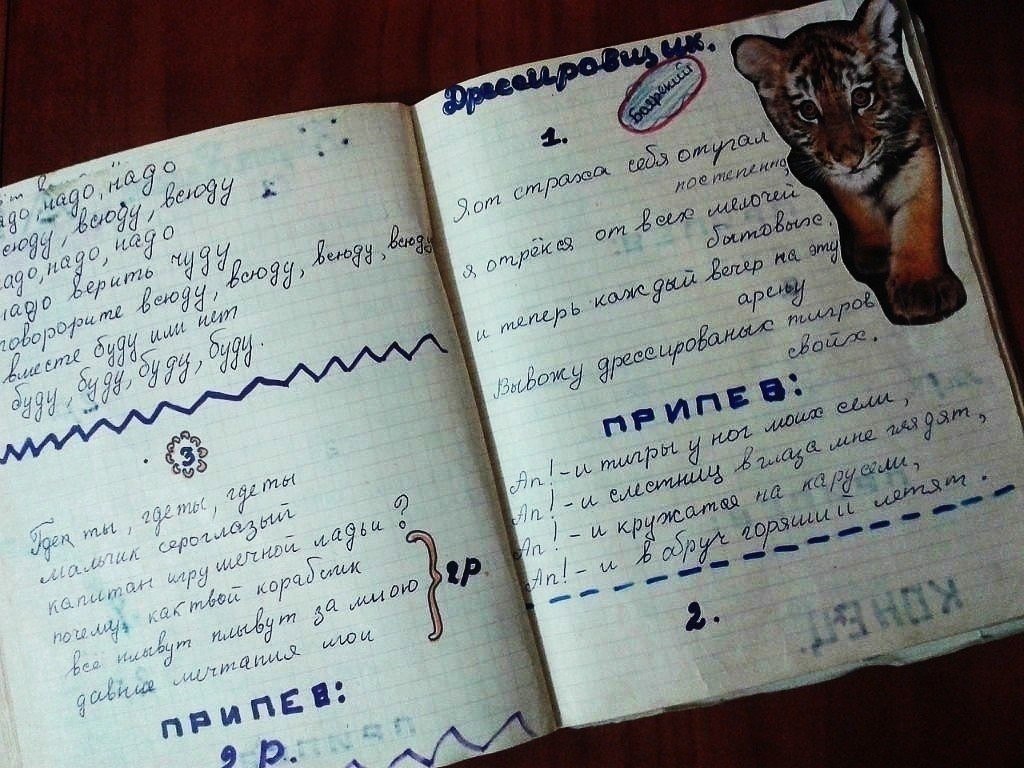 надо, надо, надо
всюду, всюду, всюду
надо, надо, надо
надо верить чуду
говорорите всюду, всюду, всюду, всюду
вместе буду или нет
буду, буду, буду, буду.
3
ты, где ты, где ты
мальчик сероглазый
капитан игрушечной ладьи?
почему, как твой кораблик
всё плывут плывут за мною
давние мечтания мои
2р.
ПРИПЕВ:
2 р.
Дрессировщик.
Боярский
1.
Я от страха себя отугал
постепенно,
я отрёкся от всех мелочей
бытовых.
и теперь каждый вечер на эту
арену
Вывожу дрессированых тигров
свойх.
ПРИПЕВ:
Ап! - и тигры у ног моих сели,
Ап! - и слестниц в глаза мне глядят,
Ап! - и кружатся на карусели,
Ап! - и в обруч горящий летят.
2.
КОНЕЦ.